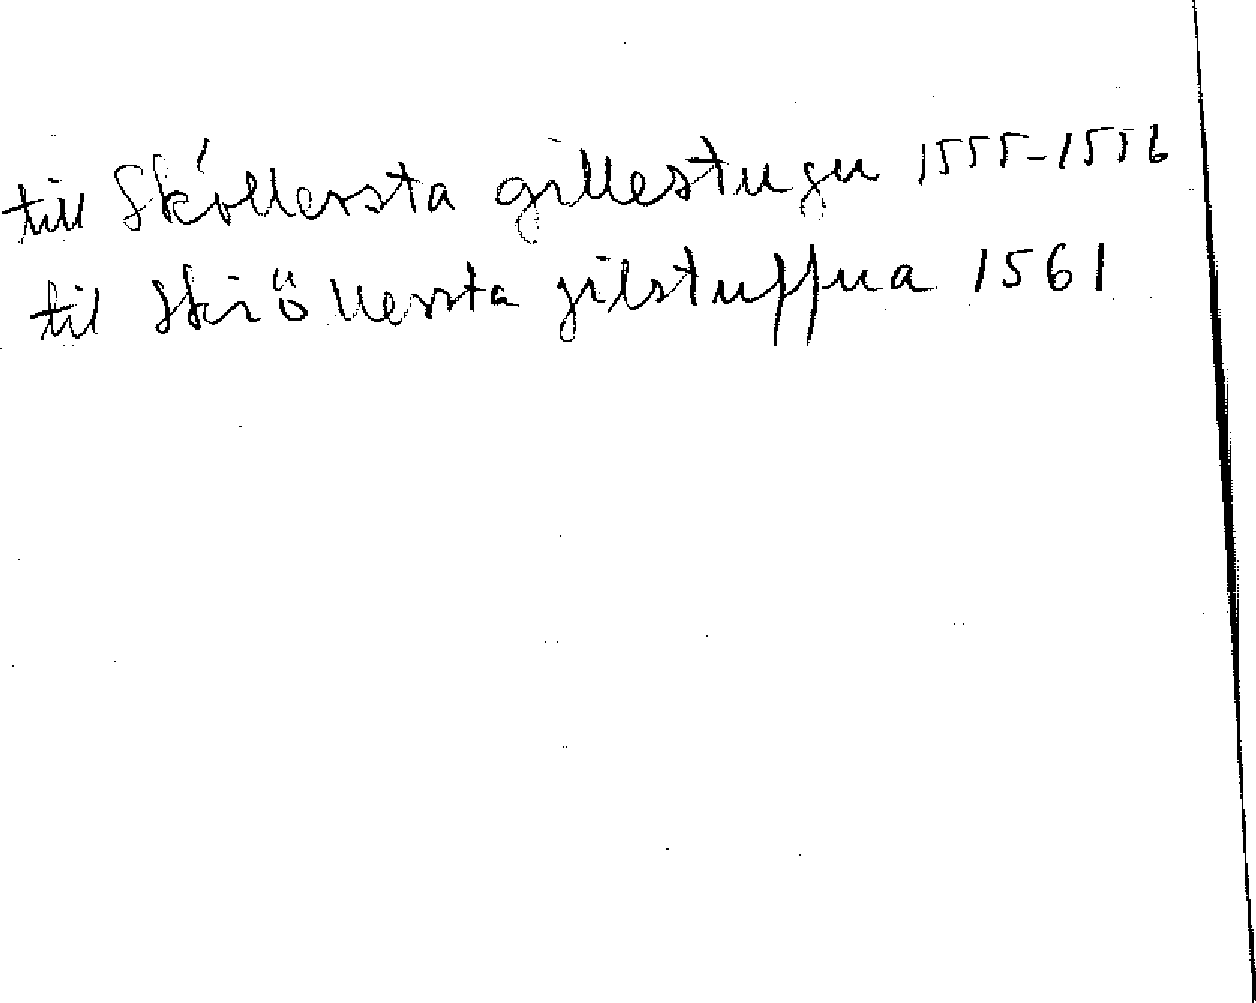 till Skóllersta gillestugu 1555-1556
til Skiöllersta gilstuffua 1561